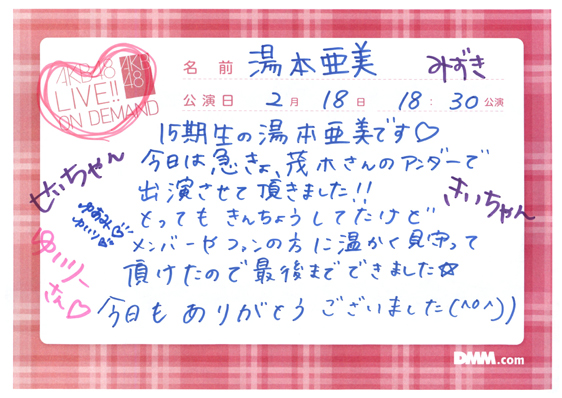 AKB48
LIVE!!
ON DEMAND
AKB
48
名前 湯本亜美 みずき
公演日 2月18日 18:30公演
15期生の湯本亜美です♡
今日は、急きょ、茂木さんのアンダーで
出演させて頂きました!!
とっても きんちょうしてたけど
メンバーやファンの方に温かく見守って
頂けたので最後までできました☆
今日も ありがとう ございました(^o^))
せいちゃん
さいちゃん
ゆあみ♡
ゆいりー
さん♡
DMM.com